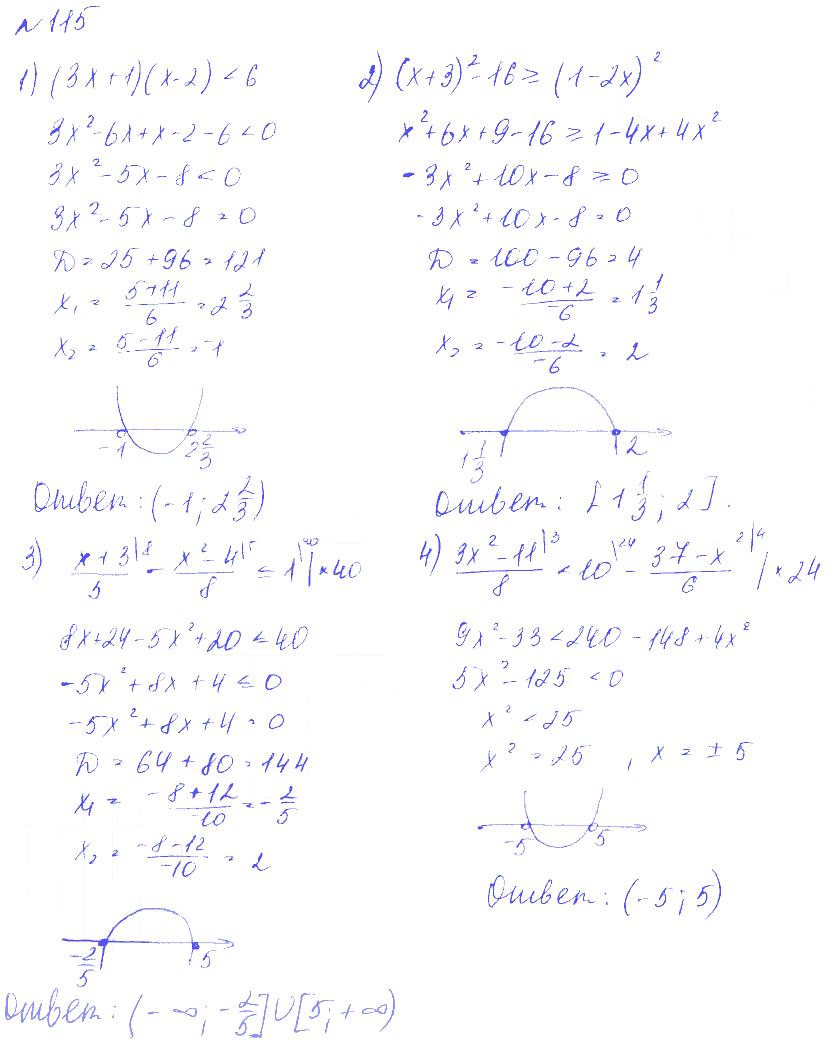 № 115
1) (3x+1)(x-2) < 6
3x²-6x+x-2-6<0
3x²-5x-8<0
3x²-5x-8=0
D=25+96=121
x₁ = (5+11)/6 = 2 2/3
x₂ = (5-11)/6 = -1
-1 2 2/3
Ответ: (-1; 2 2/3)
2) (x+3)²-16 ≥ (1-2x)²
x²+6x+9-16 ≥ 1-4x+4x²
-3x²+10x-8 ≥ 0
-3x²+10x-8=0
D = 100-96=4
x₁ = (-10+2)/-6 = 1 1/3
x₂ = (-10-2)/-6 = 2
1 1/3 2
Ответ: [1 1/3; 2].
3) (x+3)/5 \8 - (x²-4)/8 \5 ≤ 1 \40 | ×40
8x+24-5x²+20 ≤ 40
-5x²+8x+4 ≤ 0
-5x²+8x+4=0
D = 64+80=144
x₁ = (-8+12)/-10 = -2/5
x₂ = (-8-12)/-10 = 2
-2/5 5
Ответ: (-∞; -2/5] ∪ [5; +∞)
4) (3x²-11)/8 \3 < 10 \24 - (37-x²)/6 \4 | ×24
9x²-33<240-148+4x²
5x²-125 <0
x² <25
x² = 25 , x = ±5
-5 5
Ответ: (-5; 5)